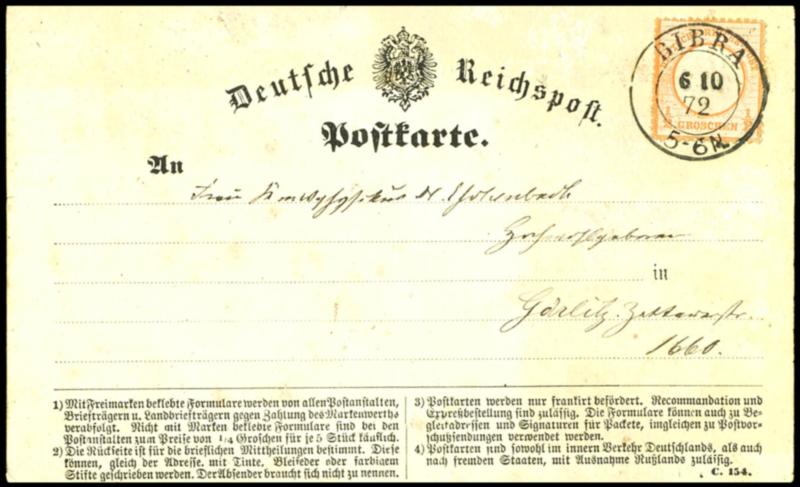 Deutsche Reichspost.
Postkarte.
BIBRA
6 10
72
5-6 N.
GROSCHEN
An
Frau
in
Görlitz.
1660.
1) Mit Freimarken beklebte Formulare werden von allen Postanstalten,
Briefträgern u. Landbriefträgern gegen Zahlung des Markenwerths
verabfolgt. Nicht mit Marken beklebte Formulare sind bei den
Postanstalten zum Preise von 1/4 Groschen für je 5 Stück käuflich.
2) Die Rückseite ist für die brieflichen Mittheilungen bestimmt. Diese
können, gleich der Adresse, mit Tinte, Bleifeder oder farbigem
Stifte geschrieben werden. Der Absender braucht sich nicht zu nennen.
3) Postkarten werden nur frankirt befördert. Recommandation und
Expreßbestellung sind zulässig. Die Formulare können auch zu Be-
gleitadressen und Signaturen für Packete, imgleichen zu Postvor-
schußsendungen verwendet werden.
4) Postkarten sind sowohl im innern Verkehr Deutschlands, als auch
nach fremden Staaten, mit Ausnahme Rußlands zulässig.
C. 154.